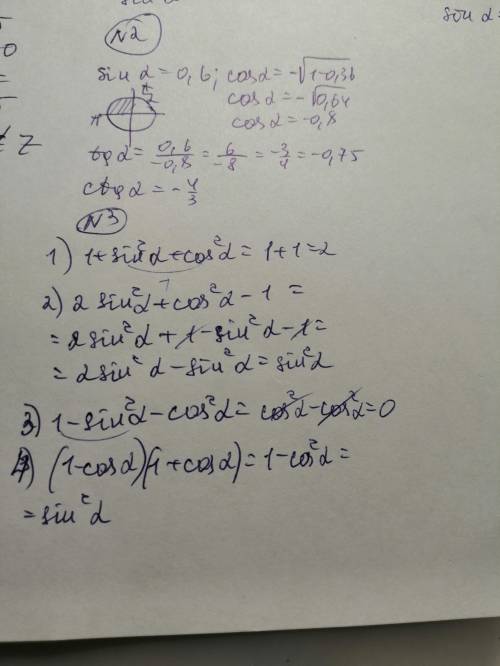 sin α
sin α =
N2
sin α = 0,6; cos α = -√1-0,36
π/2
cos α = -√0,64
π
cos α = -0,8
tg α = 0,6/-0,8 = 6/-8 = -3/4 = -0,75
ctg α = -4/3
N3
1) 1 + sin²α + cos²α = 1 + 1 = 2
1
2) 2 sin²α + cos²α - 1 =
= 2 sin²α + 1 - sin²α - 1 =
= 2 sin²α - sin²α = sin²α
3) 1 - sin²α - cos²α = cos²α - cos²α = 0
4) (1 - cos α)(1 + cos α) = 1 - cos²α =
= sin²α
0
=
Z